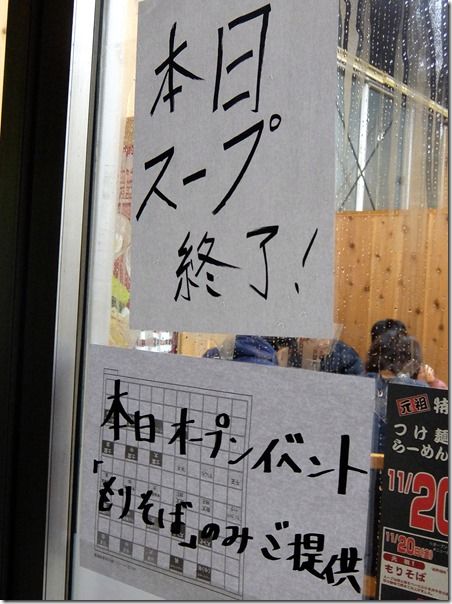 本日
スープ
終了!
本日オープンイベント
「もりそば」のみご提供
元祖 特
つけ麺
らーめん
11/20
11/20
もりそば